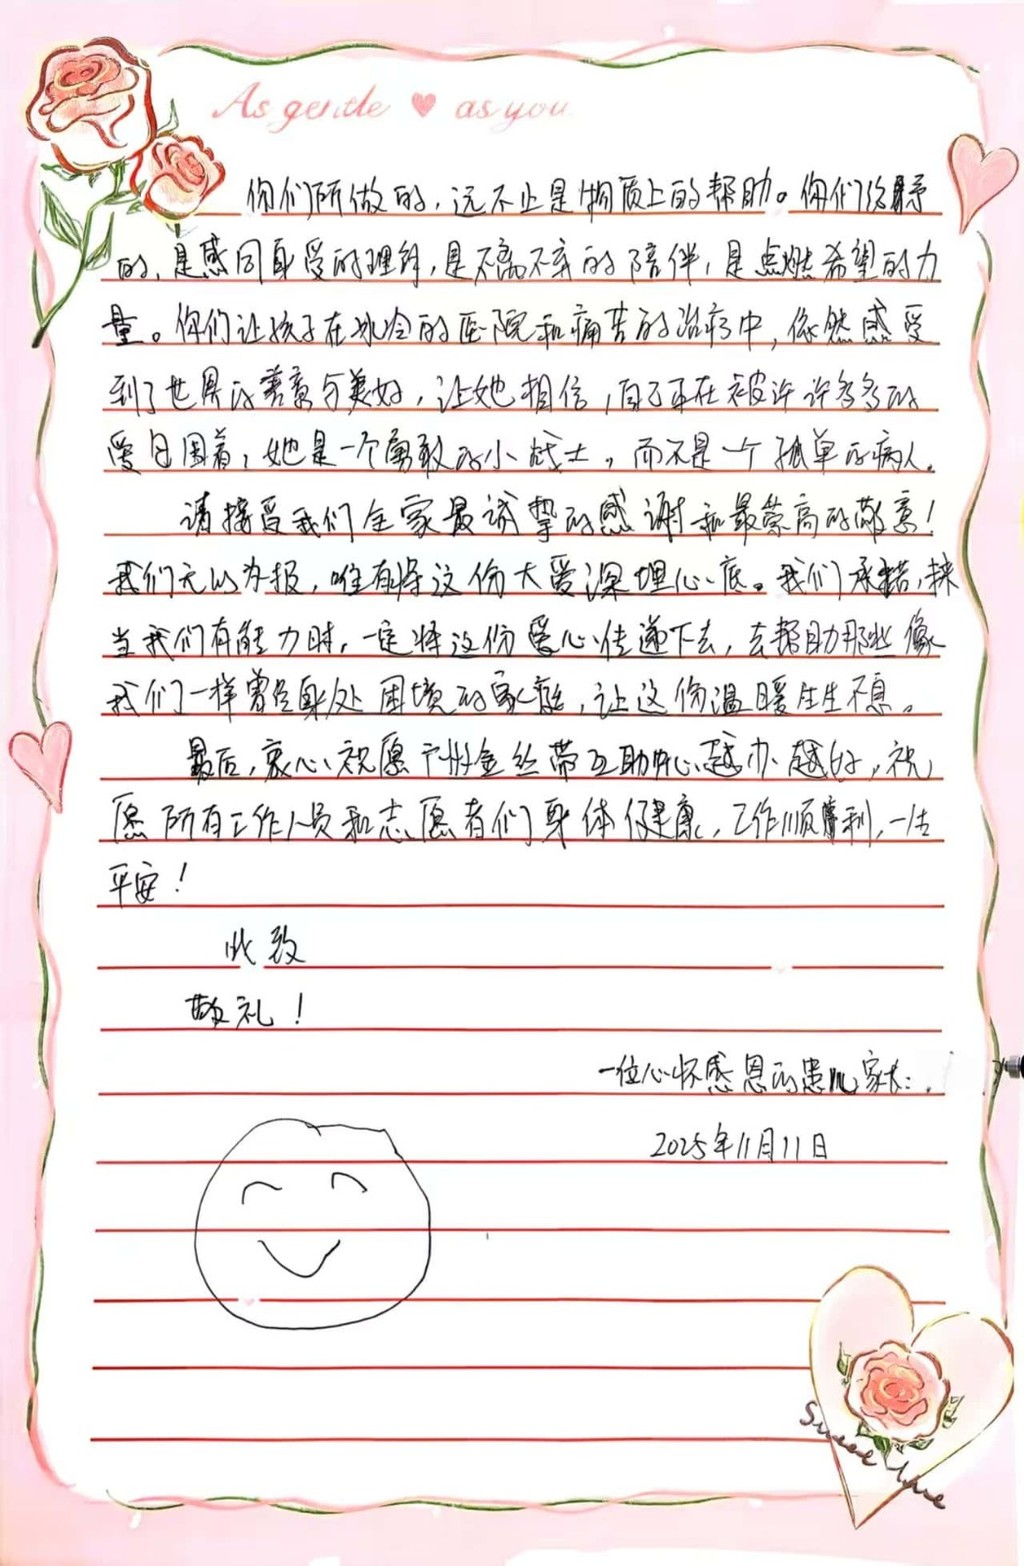 As gentle as you
你们所做的，远不止是物质上的帮助。你们给予
的，是感同身受的理解，是不离不弃的陪伴，是点燃希望的力
量。你们让孩子在冰冷的医院和痛苦的治疗中，依然感受
到了世界的善意与美好，让她相信，自己正在被许许多多的
爱包围着，她是一个勇敢的小战士，而不是一个孤单的病人。
请接受我们全家最诚挚的感谢和最崇高的敬意！
我们无以为报，唯有将这份大爱深埋心底。我们承诺，待
当我们有能力时，一定将这份爱心传递下去，去帮助那些像
我们一样曾身处困境的家庭，让这份温暖生生不息。
最后，衷心祝愿广州金丝带互助中心越办越好，祝
愿所有工作人员和志愿者们身体健康，工作顺利，一生
平安！
此致
敬礼！
一位心怀感恩的患儿家长：
2025年11月11日
Sweet time